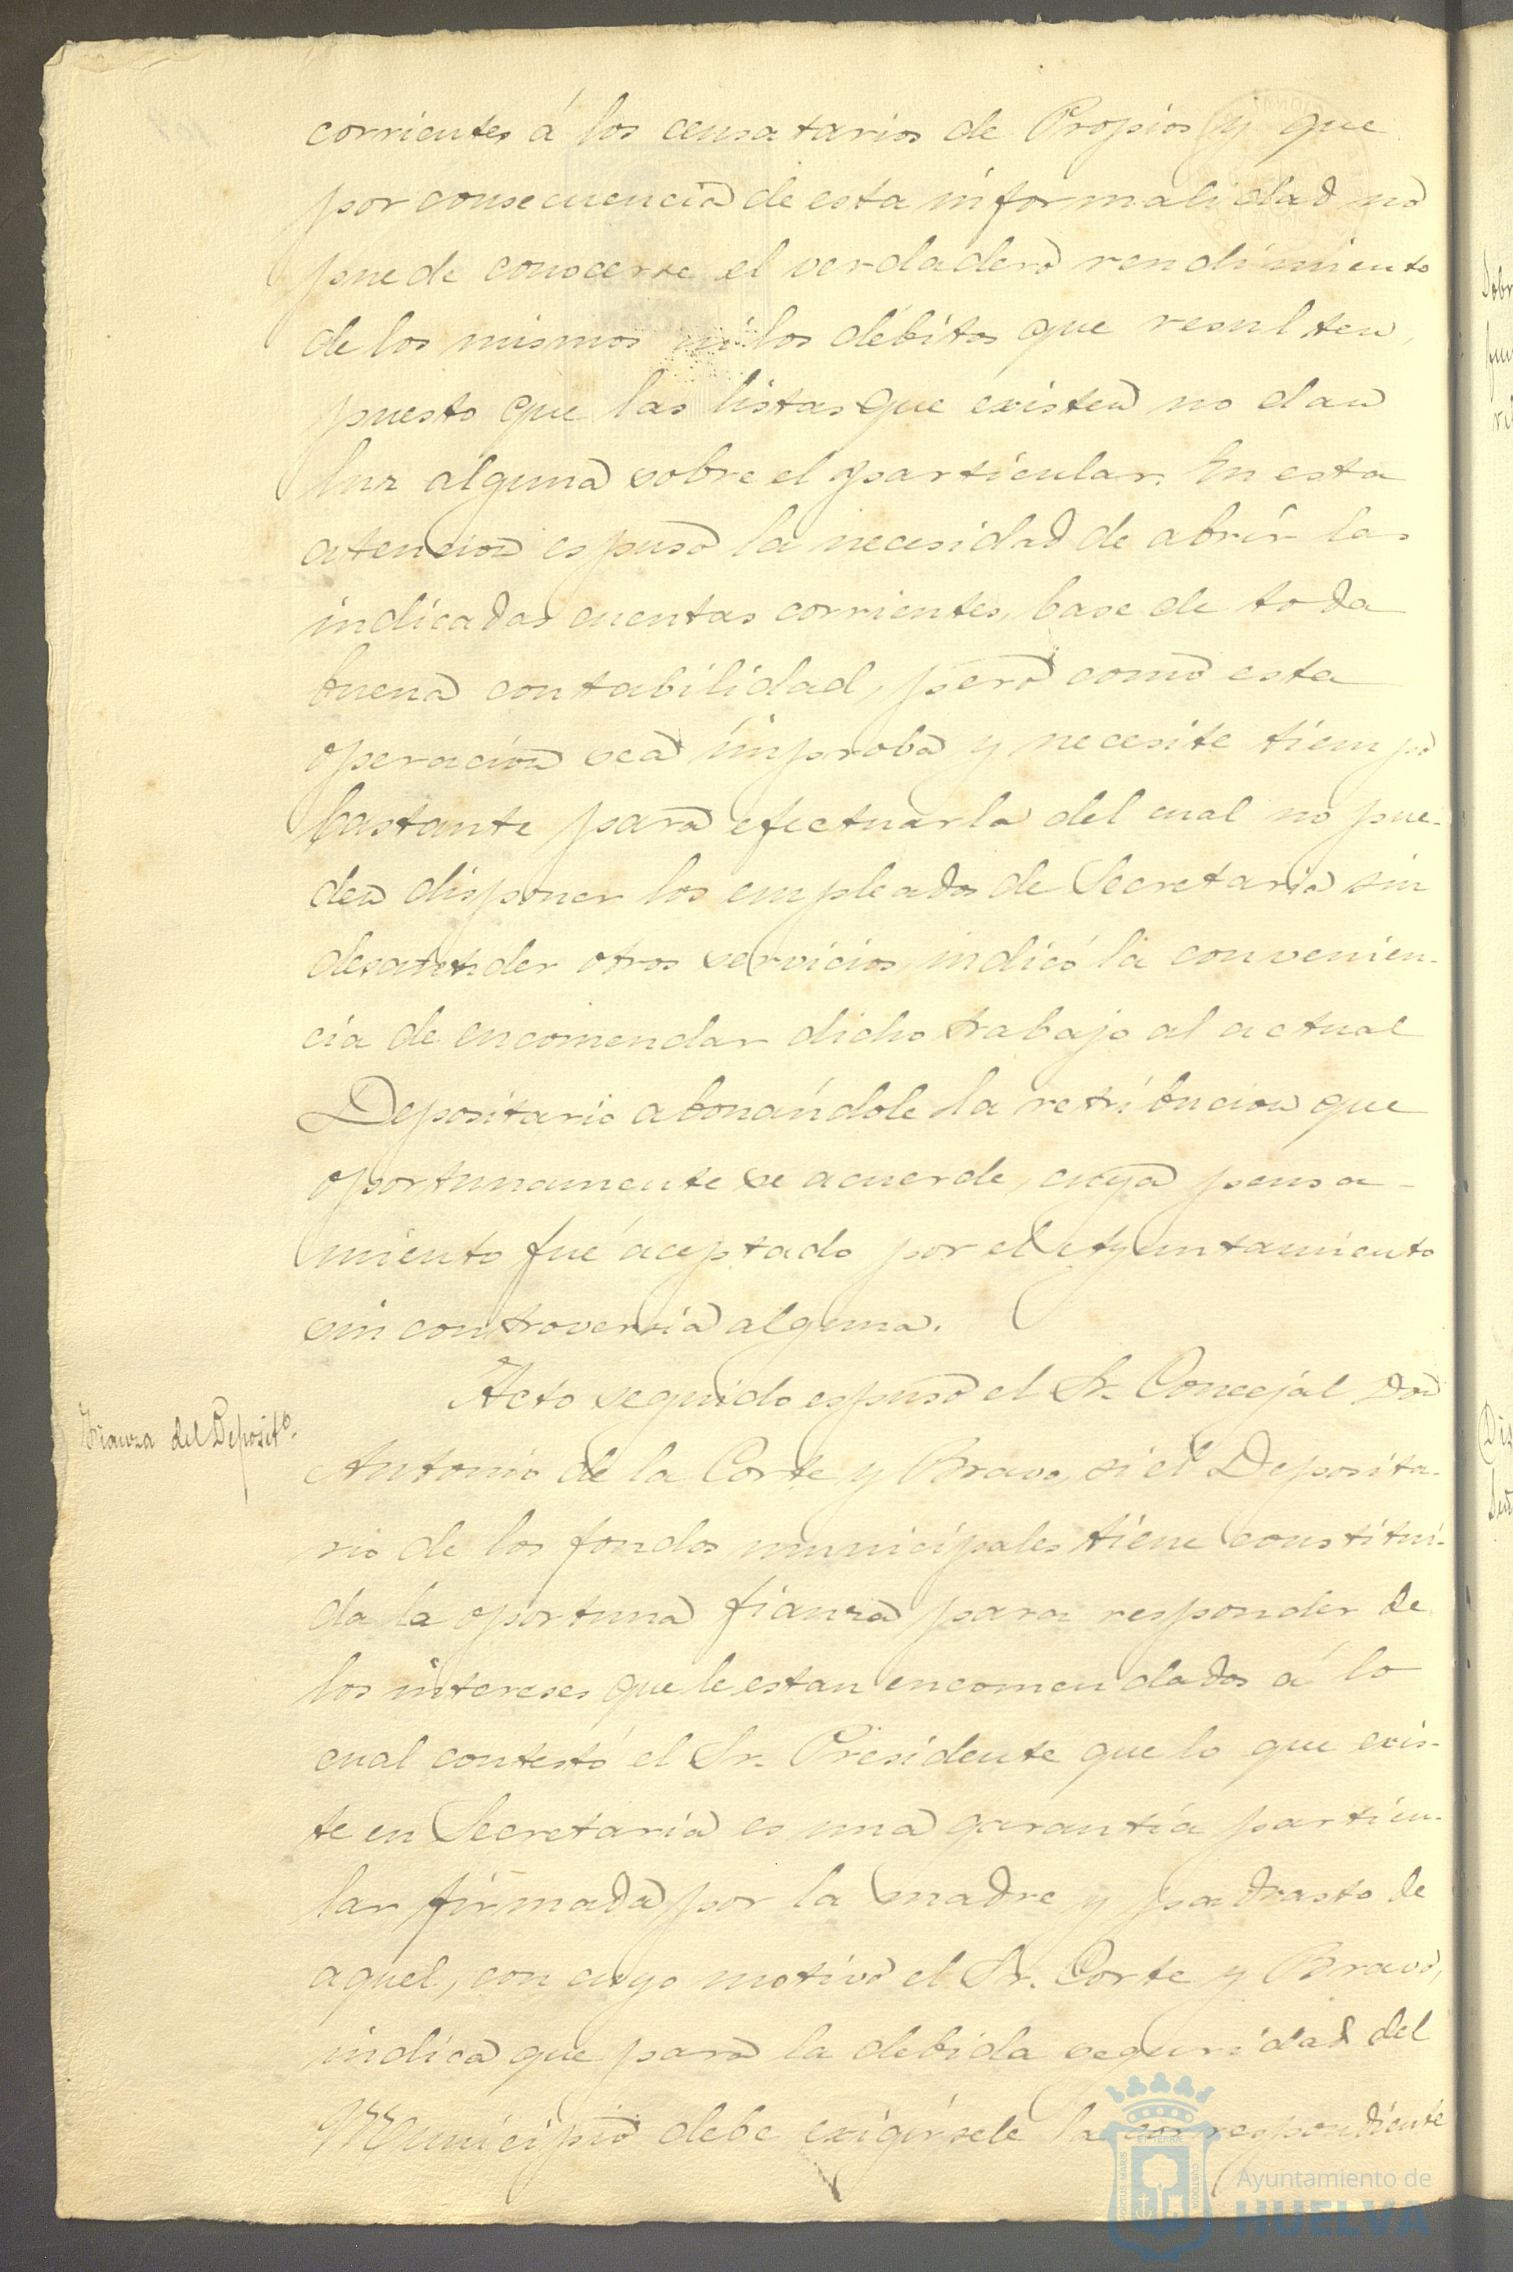 corrientes á los censatarios de Propios y que
por consecuencia de esta informalidad no
puede conocerse el verdadero rendimiento
de los mismos ni los débitos que resulten,
puesto que las listas que existen no dan
luz alguna sobre el particular. En esta
atencion espuso la necesidad de abrir las
indicadas cuentas corrientes, base de toda
buena contabilidad, pero como esta
operacion sea ímproba y necesite tiempo
bastante para efectuarla del cual no pue-
den disponer los empleados de Secretaria sin
desatender otros servicios, indicó la convenien-
cia de encomendar dicho trabajo al actual
Depositario abonándole la retribucion que
oportunamente se acuerde, cuya pensa-
miento fué aceptado por el Ayuntamiento
sin controversia alguna.
Fianza del Deposit.º
Acto seguido espuso el Sr. Concejal Don
Antonio de la Corte y Bravo, si el Deposita-
rio de los fondos municipales tiene constitui-
da la oportuna fianza para responder de
los intereses que le estan encomendados á lo
cual contestó el Sr. Presidente que lo que exis-
te en Secretaria es una garantía particu-
lar firmada por la madre y padrasto de
aquel, con cuyo motivo el Sr. Corte y Bravo,
indica que para la debida seguridad del
Municipio debe exigírsele la correspondiente
Ayuntamiento de
HUELVA